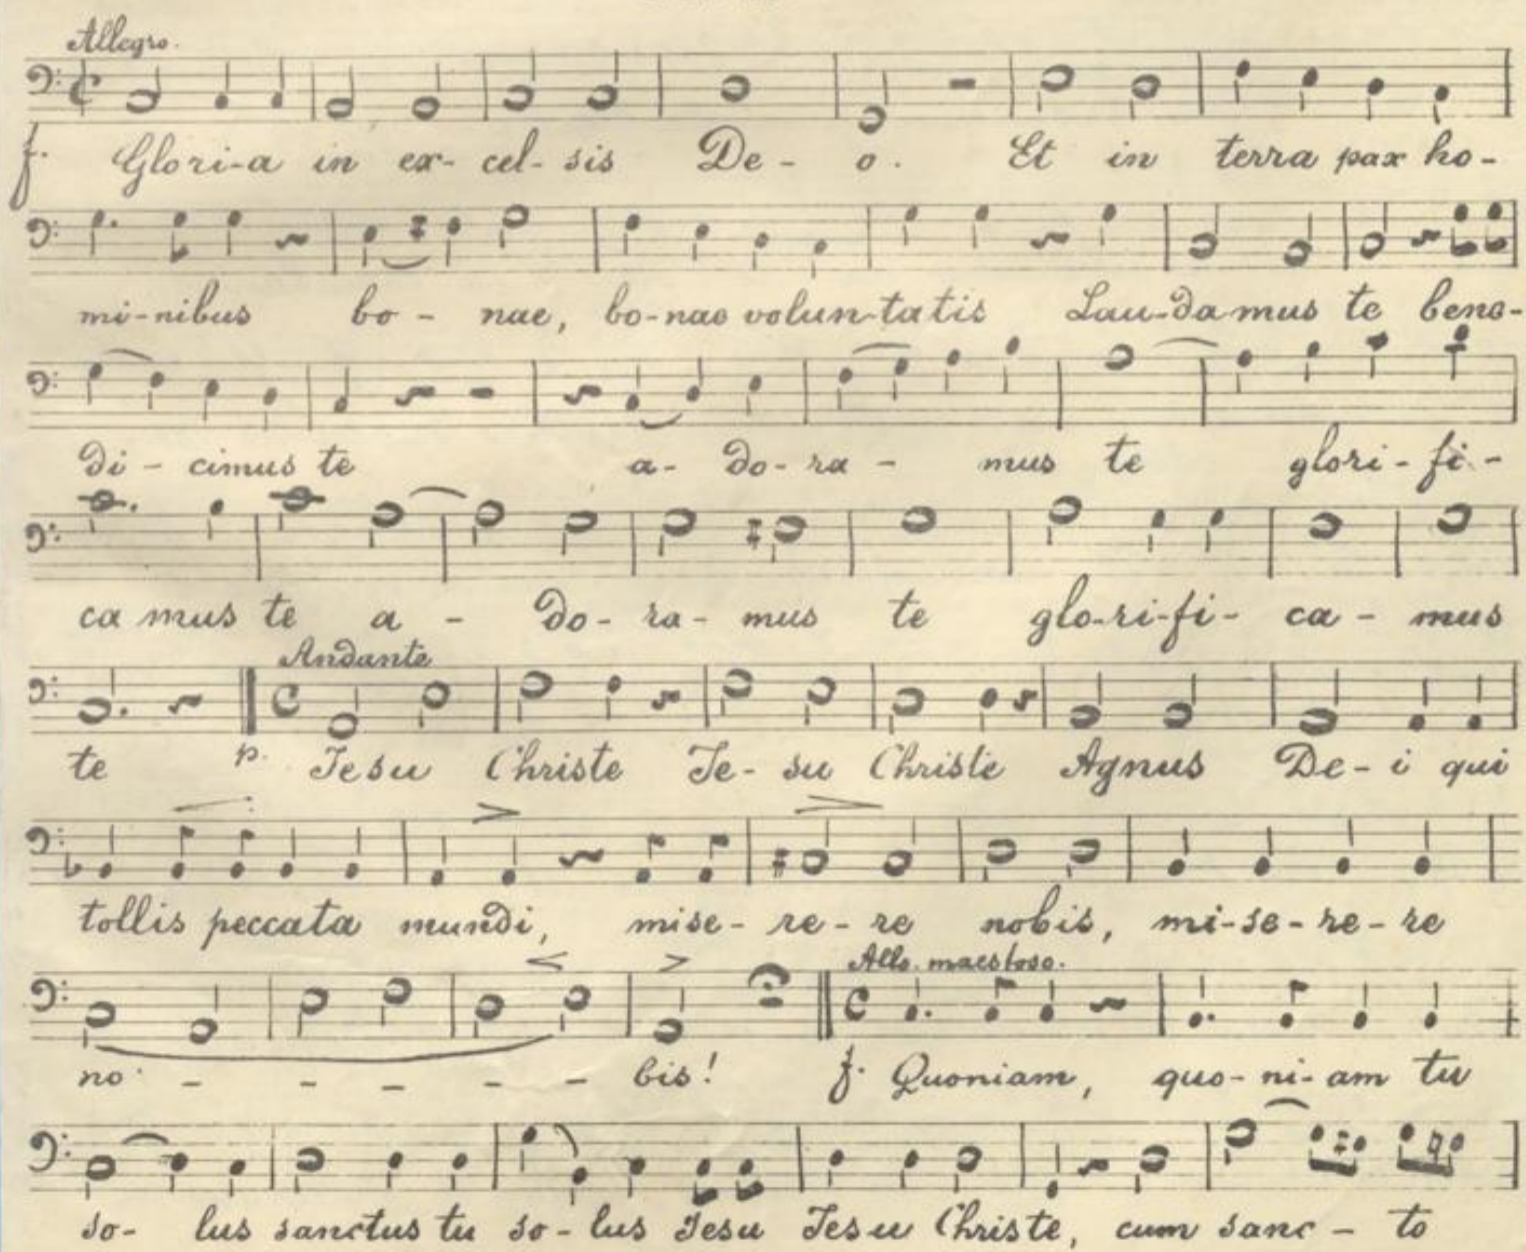 Allegro.
f. Glori-a in ex- cel- sis De- o. Et in terra pax ho-
mi-nibus bo- nae, bo-nae volun-tatis Lau-damus te bene-
di- cimus te a- do-ra- mus te glori-fi-
ca mus te a- do- ra- mus te glo-ri-fi- ca- mus
Andante
te p. Jesu Christe Je- su Christe Agnus De-i qui
tollis peccata mundi, mise-re-re nobis, mi-se-re-re
Allo. maestoso.
no - - - - - bis! f. Quoniam, quo-ni-am tu
so- lus sanctus tu so-lus Jesu Jesu Christe, cum sanc- to